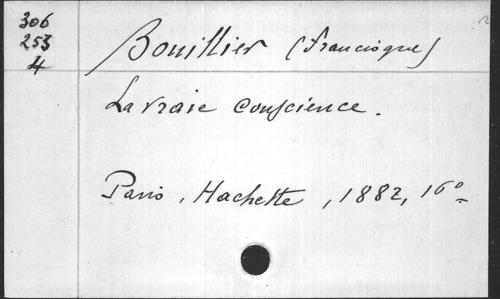 306
253
4
Bouillier (Francisque)
La vraie conscience.
Paris, Hachette, 1882, 16°